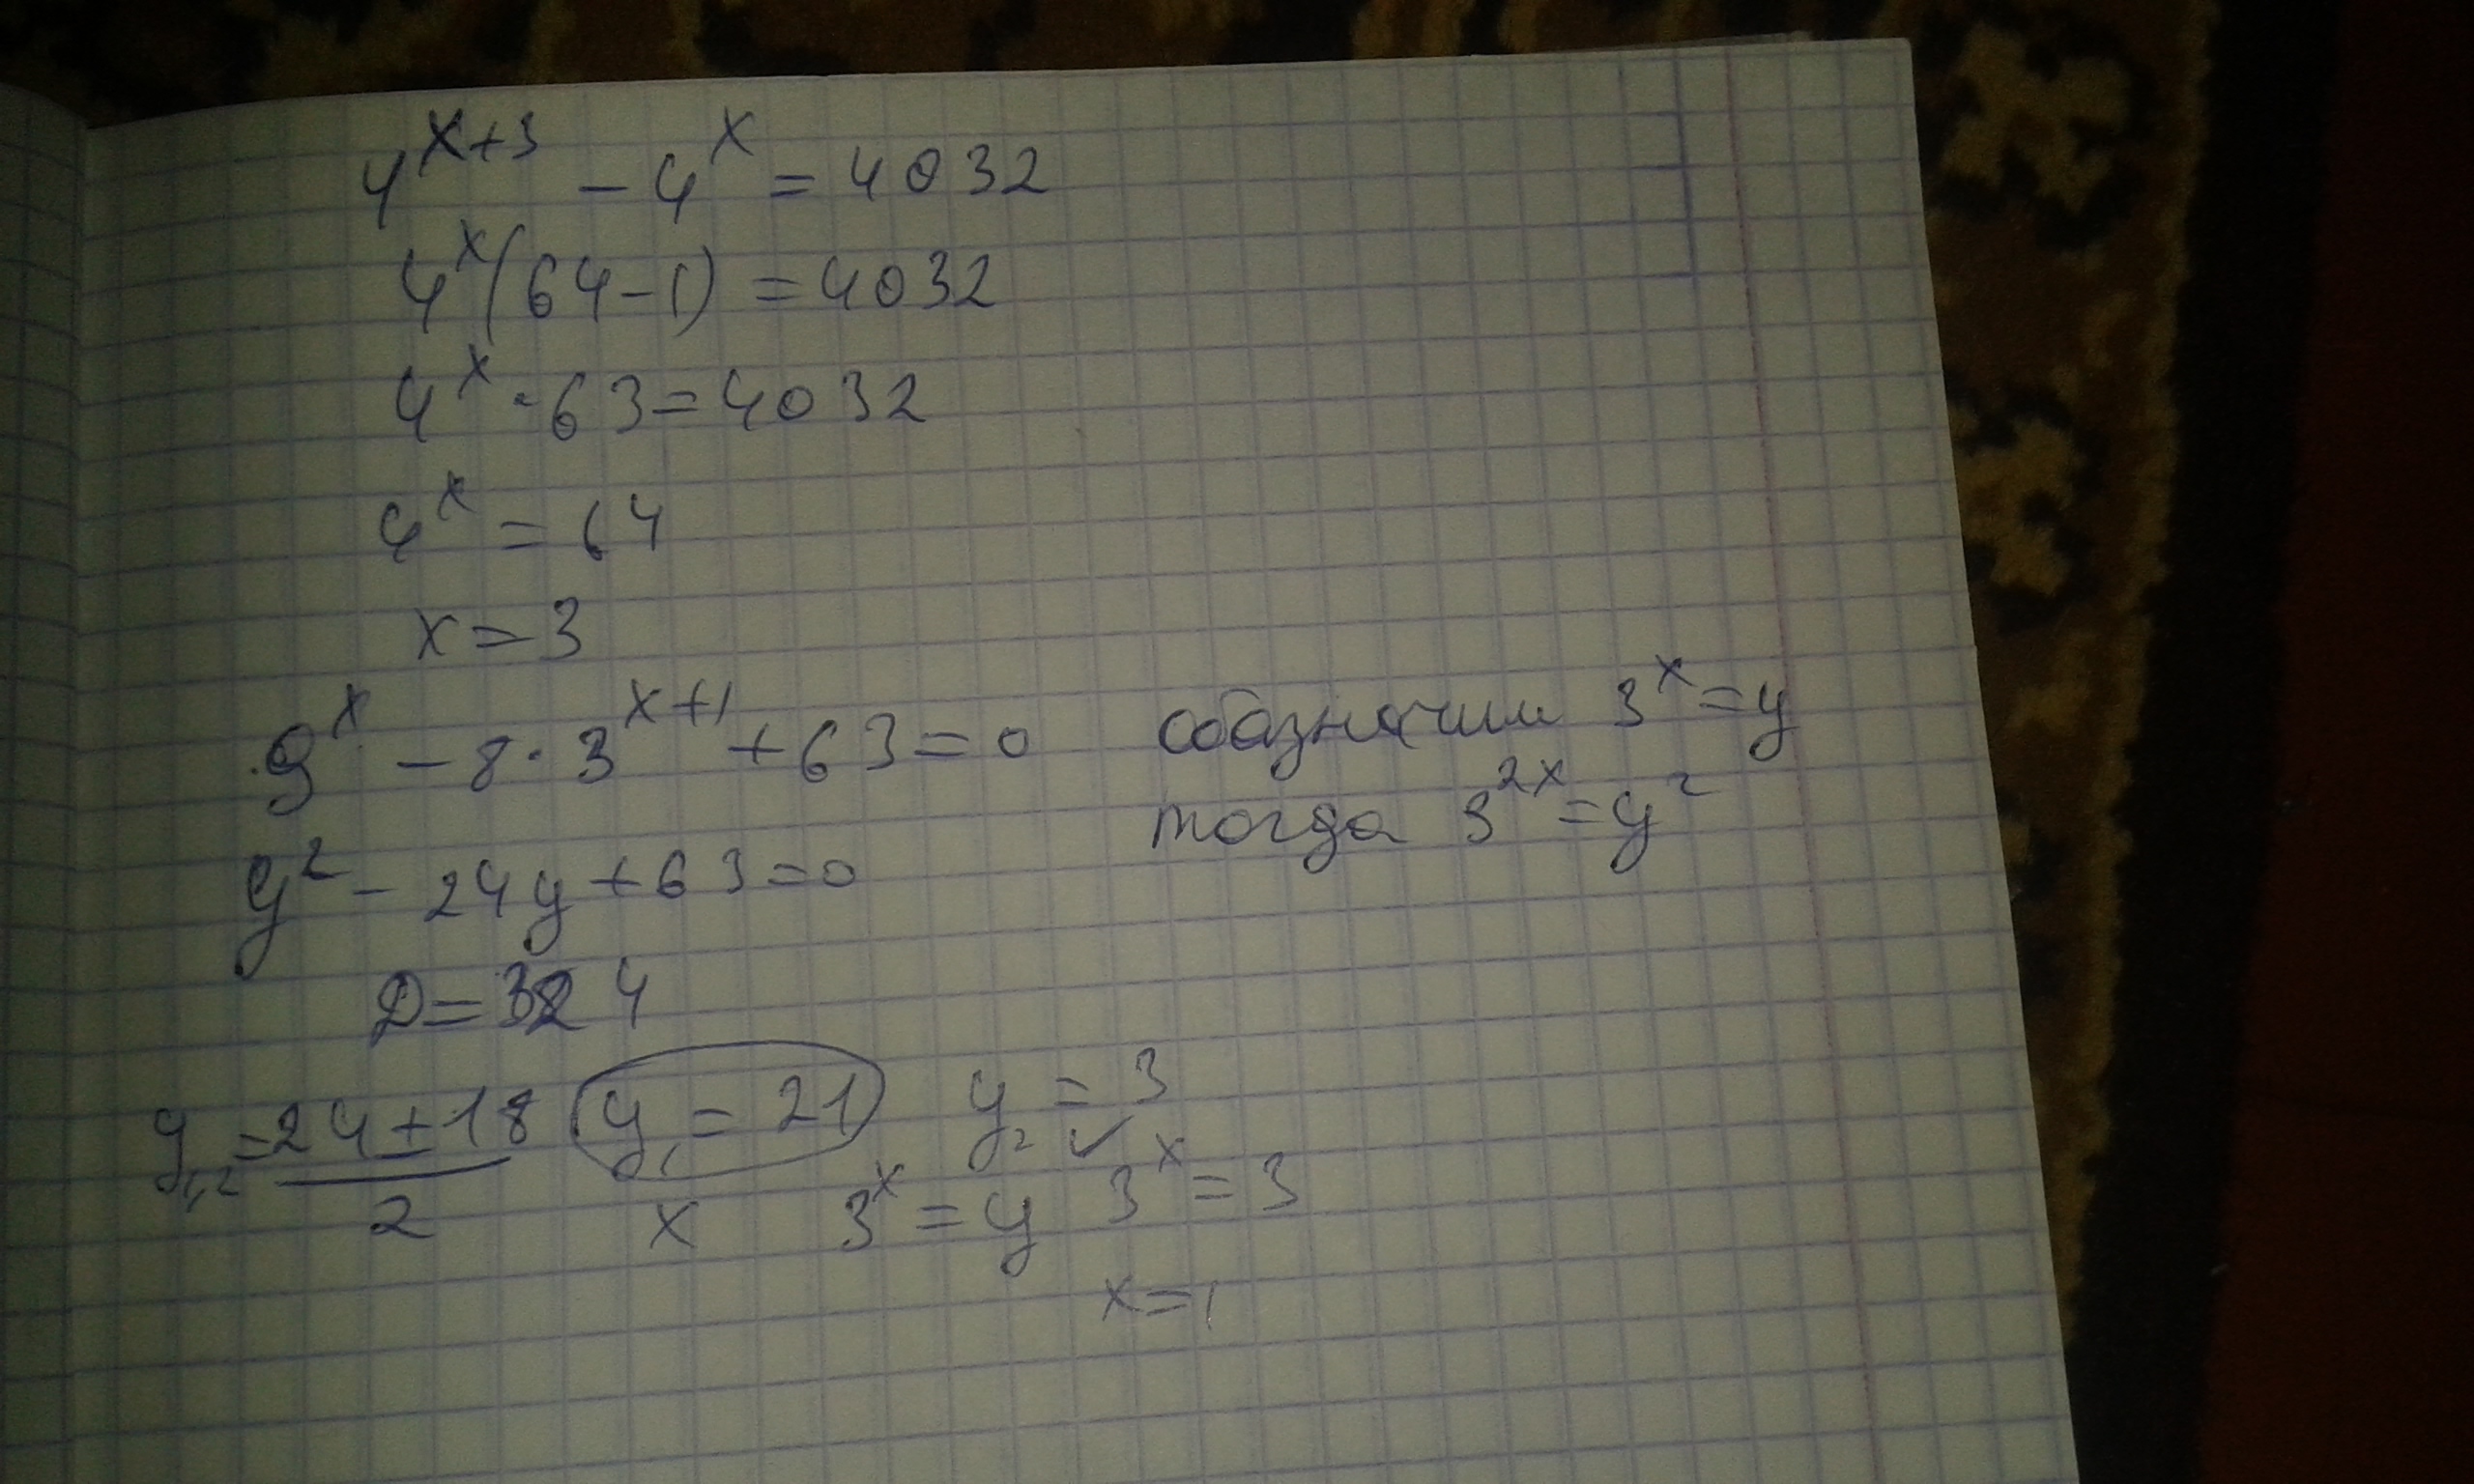 4^{x+3} - 4^x = 4032
4^x(64-1) = 4032
4^x · 63 = 4032
4^x = 64
x = 3
9^x - 8 · 3^{x+1} + 63 = 0 обозначим 3^x = y
y^2 - 24y + 63 = 0 тогда 3^{2x} = y^2
D = 324
y_{1,2} = \frac{24 ± 18}{2} y_1 = 21 y_2 = 3 ✓
x 3^x = y 3^x = 3
x = 1